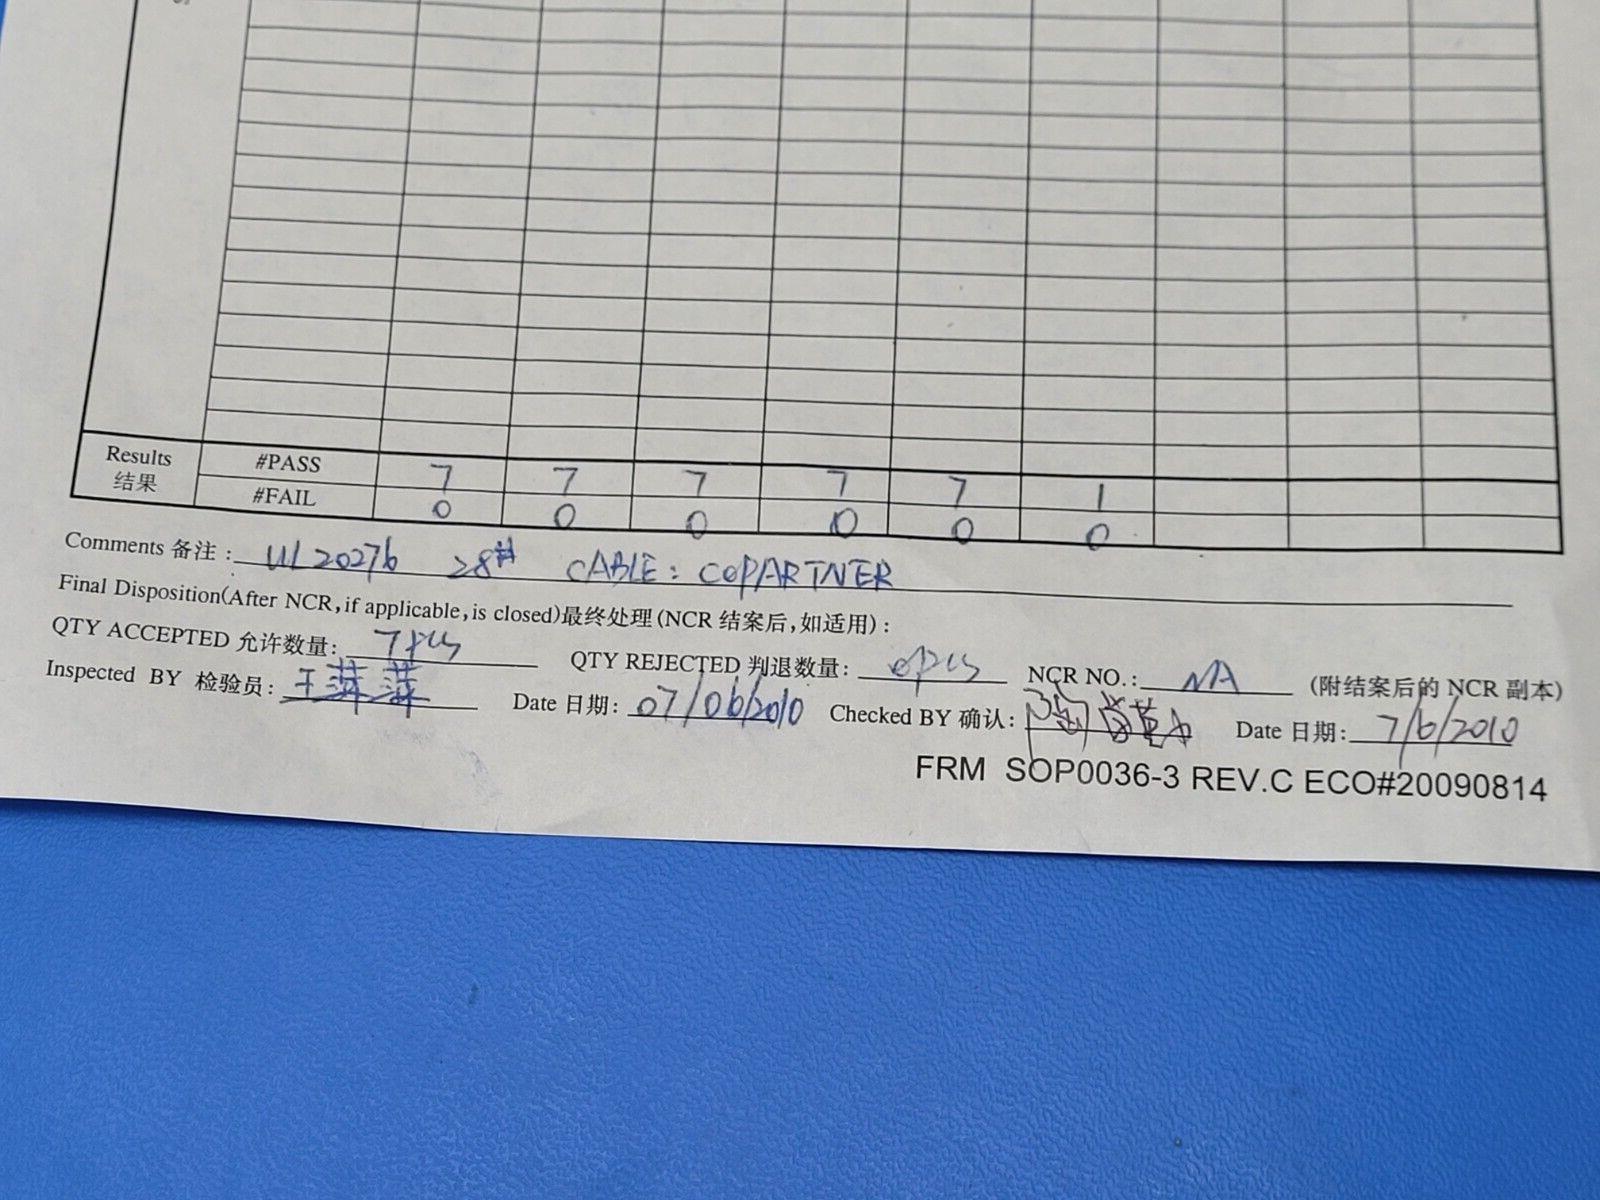 Results
结果
#PASS 7 7 7 7 7 1
#FAIL 0 0 0 0 0 0
Comments 备注: UL20276 28# CABLE: COPARTNER
Final Disposition(After NCR,if applicable,is closed)最终处理(NCR 结案后,如适用):
QTY ACCEPTED 允许数量: 7pcs QTY REJECTED 判退数量: 0pcs NCR NO.: NA (附结案后的 NCR 副本)
Inspected BY 检验员: 王萍萍 Date 日期: 07/06/2010 Checked BY 确认: Date 日期: 7/6/2010
FRM SOP0036-3 REV.C ECO#20090814